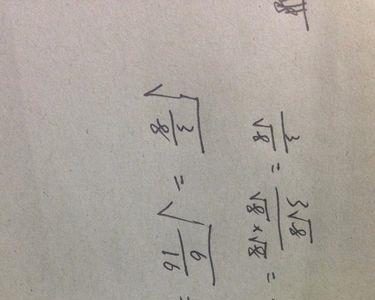 3/√8 = 3√8/√8×√8 =
√3/8 = √6/16 =